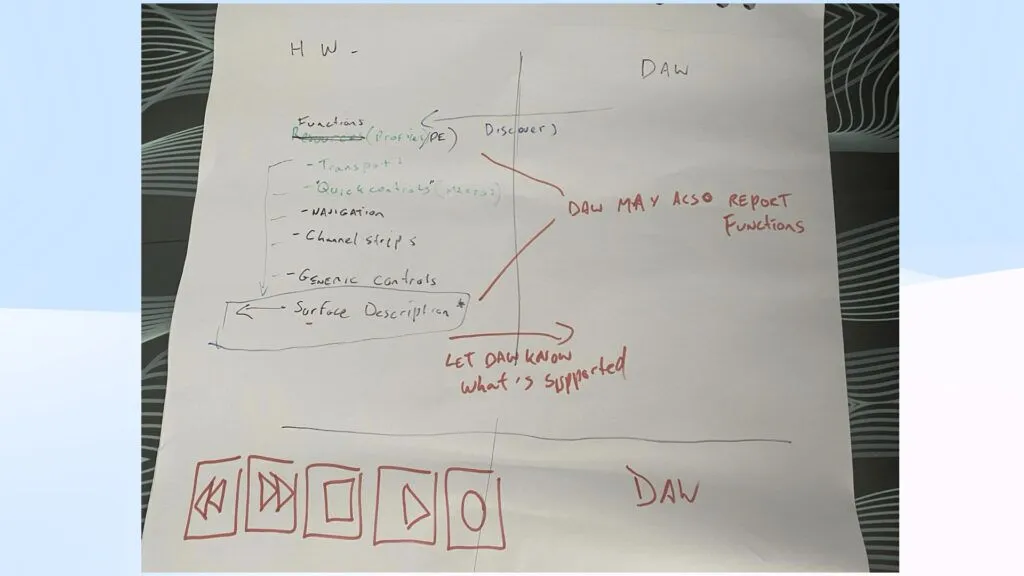 HW -
DAW
Functions
Resources (Profiles/PE)
Discovery
- Transport
- "Quick controls"
- NAVIGATION
- Channel strips
- GENERIC controls
- Surface Description *
DAW MAY ALSO REPORT
Functions
LET DAW KNOW
what's supported
DAW